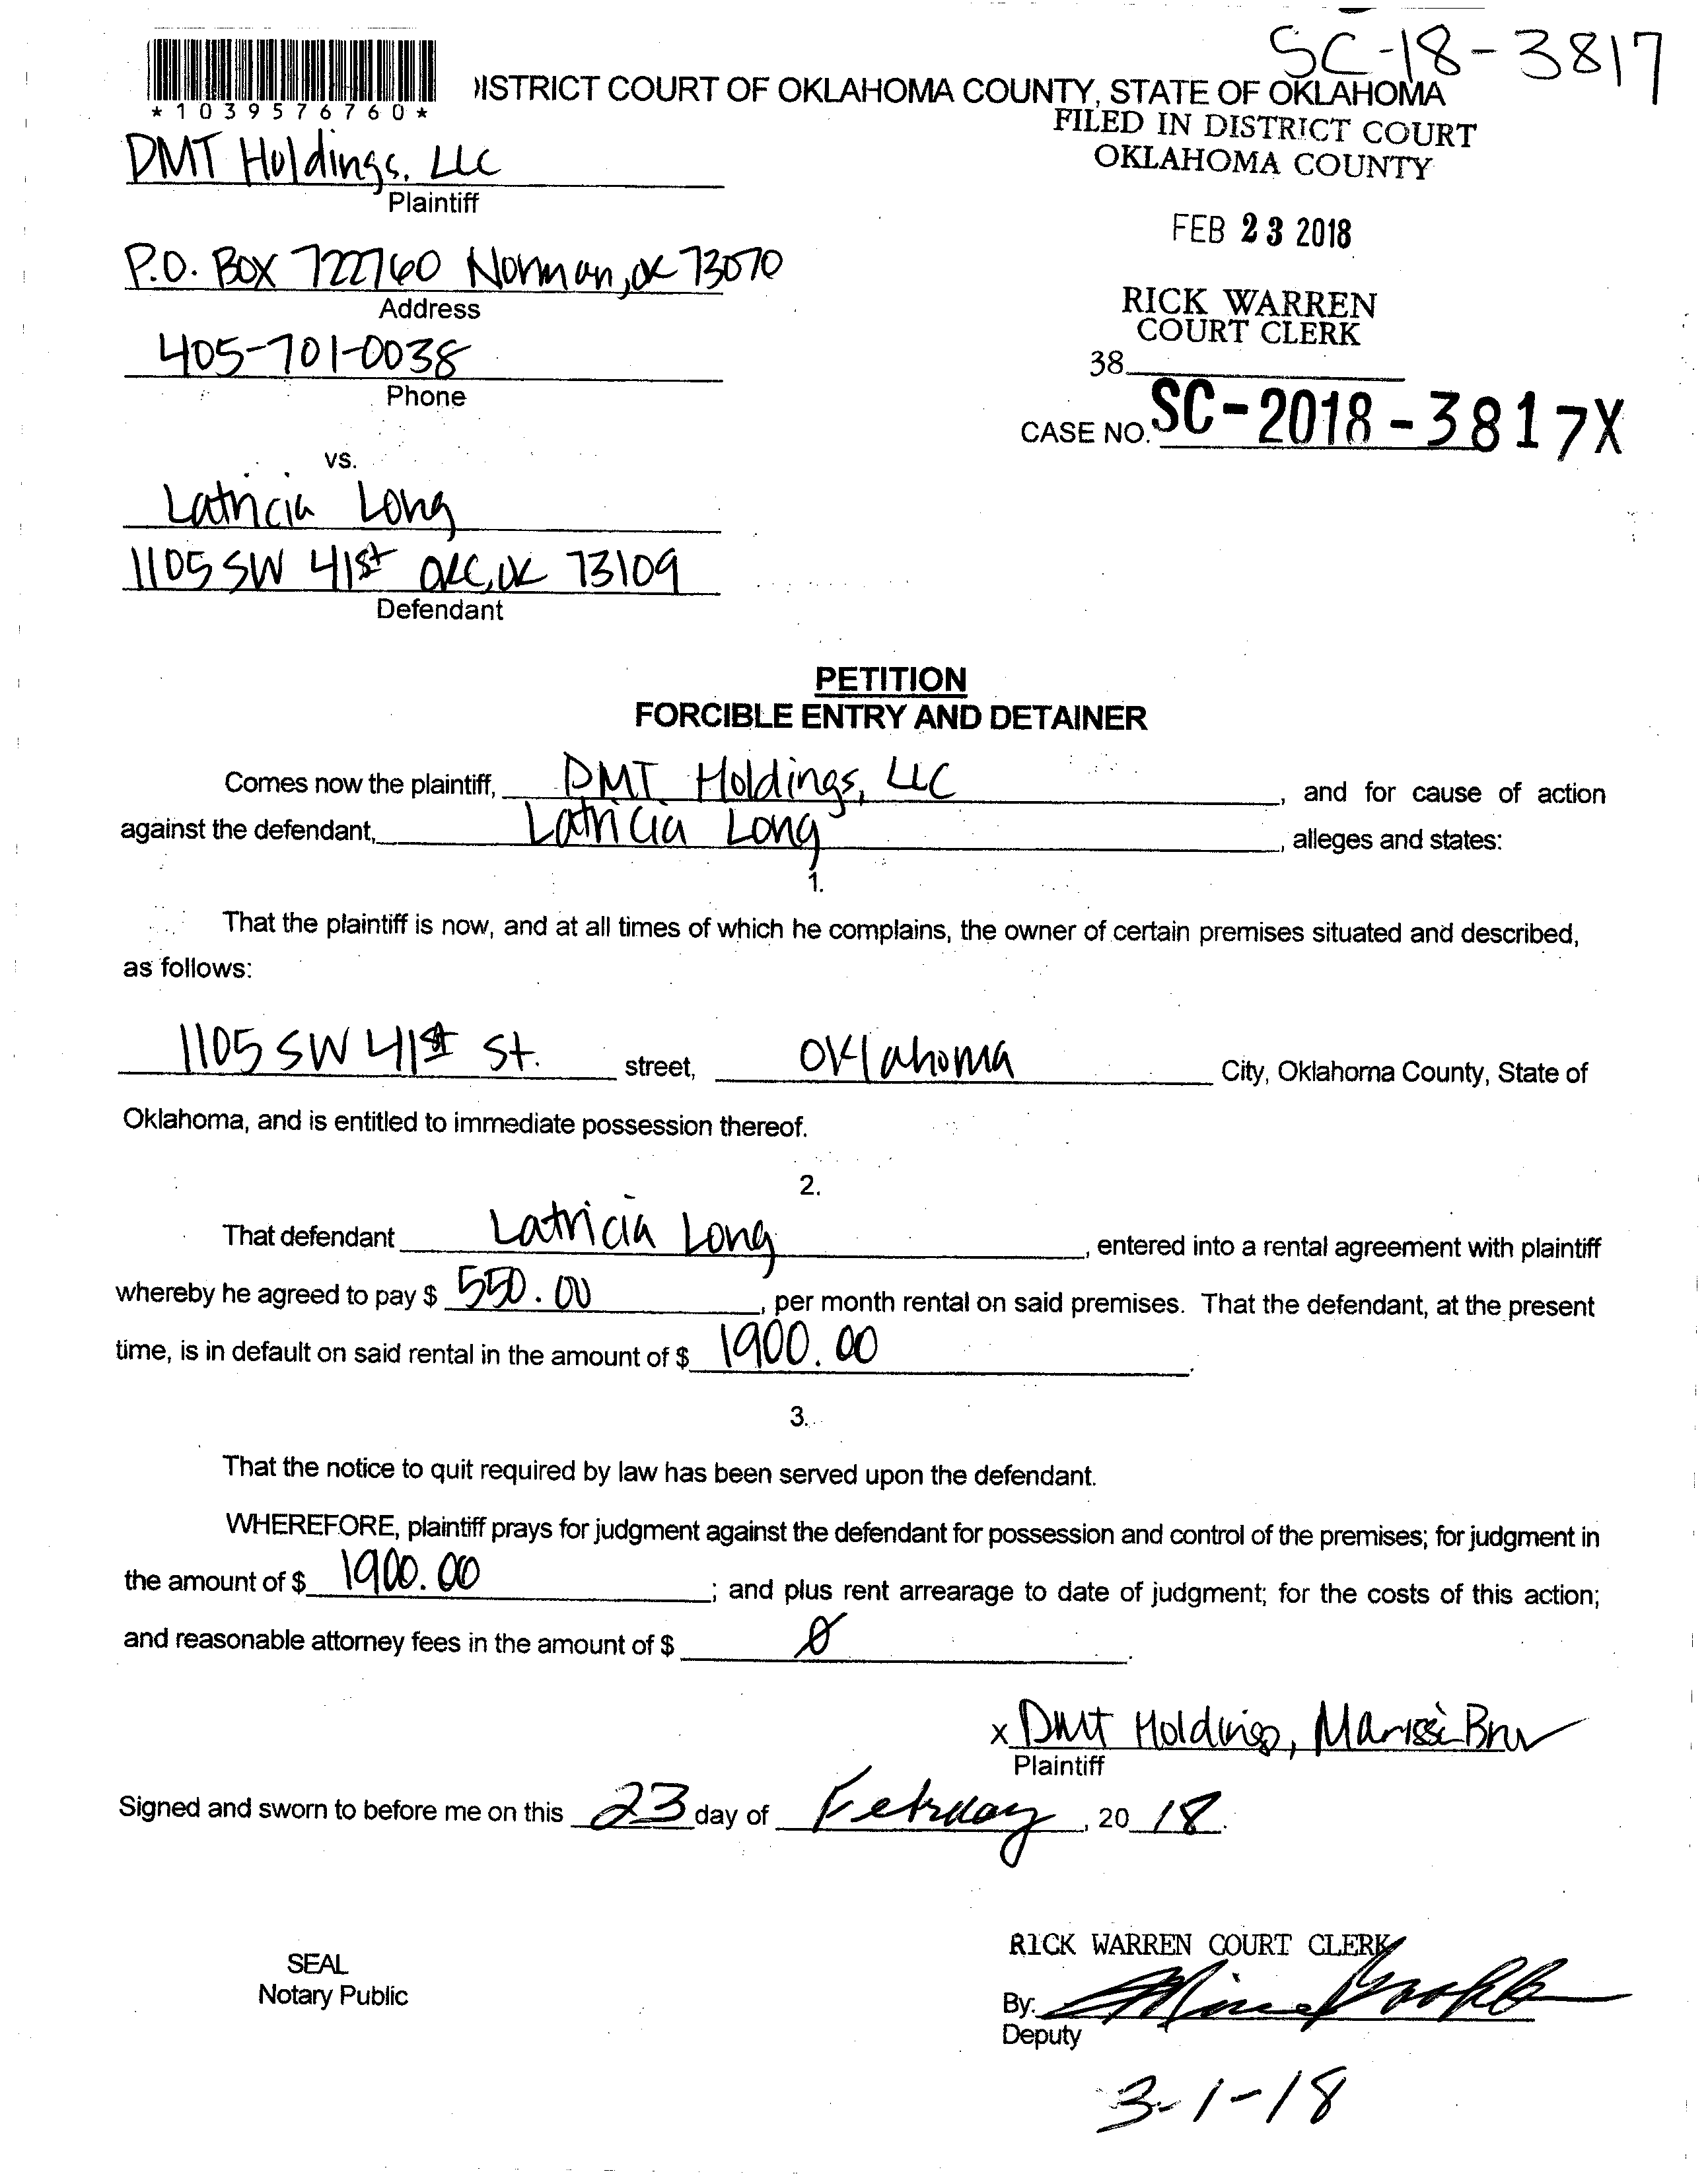 SC-18-3817
*1039576760*
ISTRICT COURT OF OKLAHOMA COUNTY, STATE OF OKLAHOMA
FILED IN DISTRICT COURT
OKLAHOMA COUNTY
DMT Holdings, LLC
Plaintiff
FEB 23 2018
P.O. Box 722760 Norman, OK 73070
Address
RICK WARREN
COURT CLERK
405-701-0038
38
Phone
CASE NO. SC-2018-3817X
vs.
Latricia Long
1105 SW 41st OKC, OK 73109
Defendant
PETITION
FORCIBLE ENTRY AND DETAINER
Comes now the plaintiff, DMT Holdings, LLC, and for cause of action
against the defendant, Latricia Long, alleges and states:
1.
That the plaintiff is now, and at all times of which he complains, the owner of certain premises situated and described,
as follows:
1105 SW 41st St. street, Oklahoma City, Oklahoma County, State of
Oklahoma, and is entitled to immediate possession thereof.
2.
That defendant Latricia Long, entered into a rental agreement with plaintiff
whereby he agreed to pay $ 550.00, per month rental on said premises. That the defendant, at the present
time, is in default on said rental in the amount of $ 1900.00.
3.
That the notice to quit required by law has been served upon the defendant.
WHEREFORE, plaintiff prays for judgment against the defendant for possession and control of the premises; for judgment in
the amount of $ 1900.00; and plus rent arrearage to date of judgment; for the costs of this action;
and reasonable attorney fees in the amount of $ 0.
x DMT Holdings,
Plaintiff
Signed and sworn to before me on this 23 day of February, 2018.
RICK WARREN COURT CLERK
SEAL
Notary Public
By:
Deputy
3-1-18